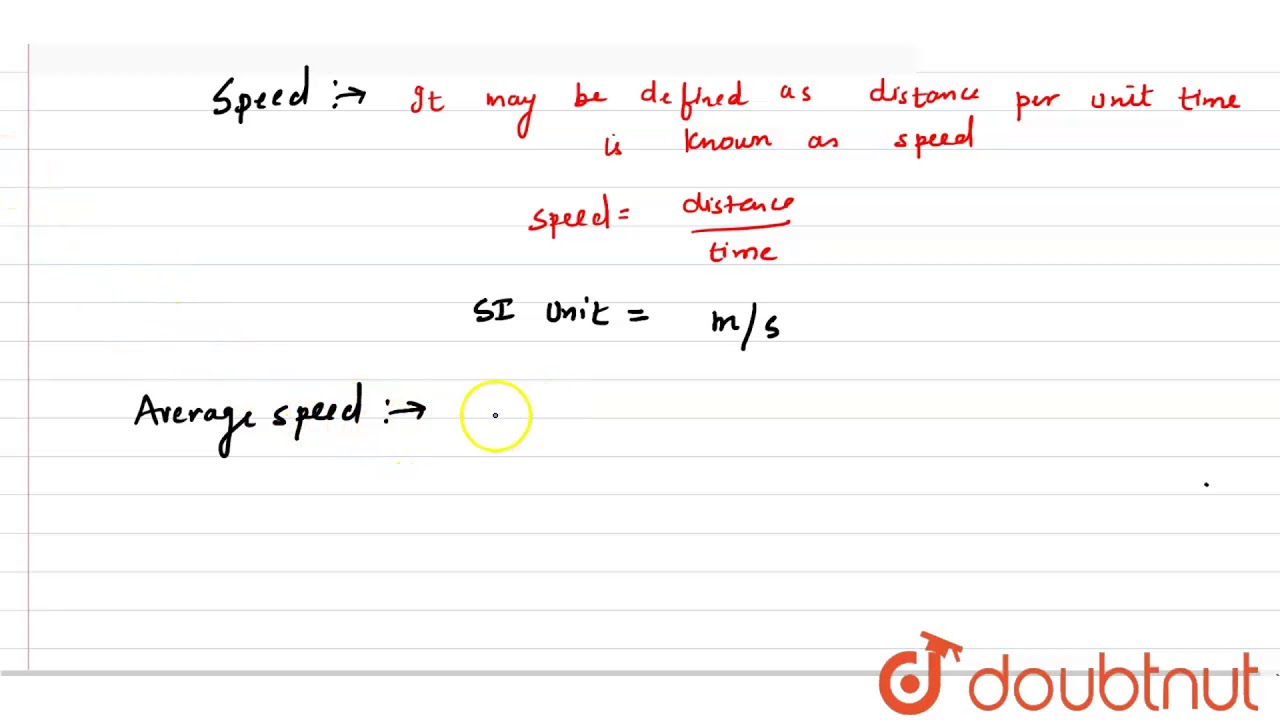 Speed :→ It may be defined as distance per unit time
is known as speed
speed = distance
time
SI Unit = m/s
Average speed :→
doubtnut